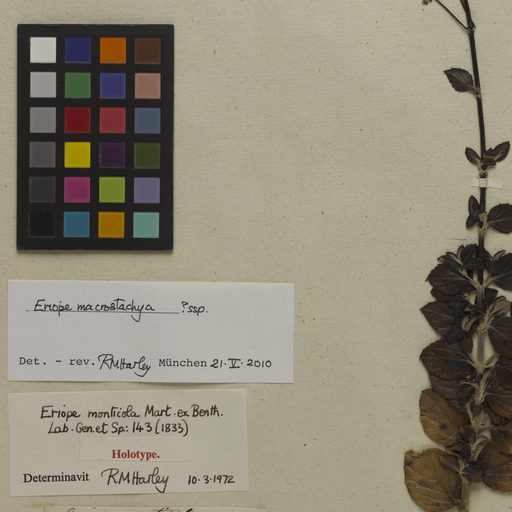 Eriope macrostachya ?ssp.
Det. - rev. RMHarley München 21.V.2010
Eriope monticola Mart. ex Benth.
Lab. Gen. et Sp: 143 (1833)
Holotype.
Determinavit RMHarley 10.3.1972